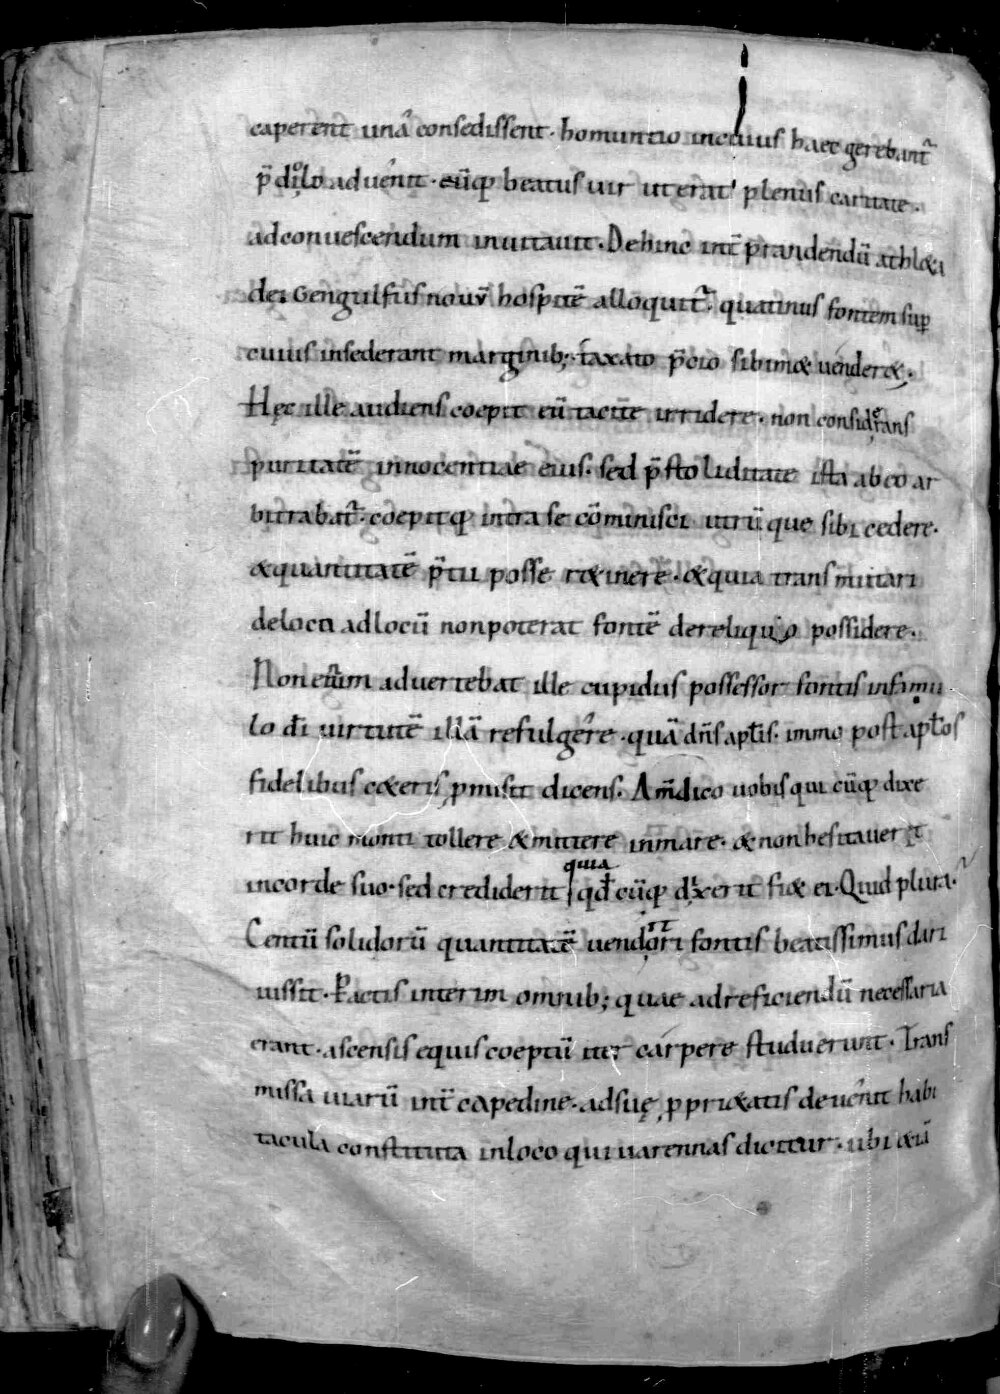 caperent unā consedissent· homuntio incuius haec gerebant᷑
p̄diolo aduenit· eūq; beatus uir ut erat plenus caritate·
adconuescendum inuitauit· Dehinc int̄ prandendū athl&a
dei Gengulfus nouū hospitē alloquit᷑· quatinus fontem sup
cuius insederant marginib; taxato p̄cio sibim& uender&·
Hęc ille audiens coepit eū tacite irridere· non considerans
puritatē innocentiae eius· sed p̄ stoliditate ista ab eo ar
bitrabat᷑· coepitq; intra se cōminisci utrū que sibi cedere·
&quantitatē p̄tii posse r&inere· &quia transmutari
deloco adlocū nonpoterat fontē dereliquo possidere·
Non enim aduertebat ille cupidus possessor fontis infamu
lo dī uirtutē illā refulgere· quā dn̄s apłis· immo post apłos
fidelibus c&eris ꝓmisit dicens· Am̄ dico uobis qui cūq; dixe
rit huic monti tollere &mittere inmare· & non hesitauerit
quia
incorde suo· sed crediderit qđ cūq; dixerit fi& ei· Quid plura·
Centū solidorū quantitatē uenditori fontis beatissimus dari
iussit· Pactis interim omnib; quae adreficiendū necessaria
erant· ascensis equis coeptū iter carpere studuerunt· Trans
missa uiarū int̄capedine· adsuę ꝓpri&atis deuenit habi
tacula constituta inloco qui uarennas dicitur· ubi &iā